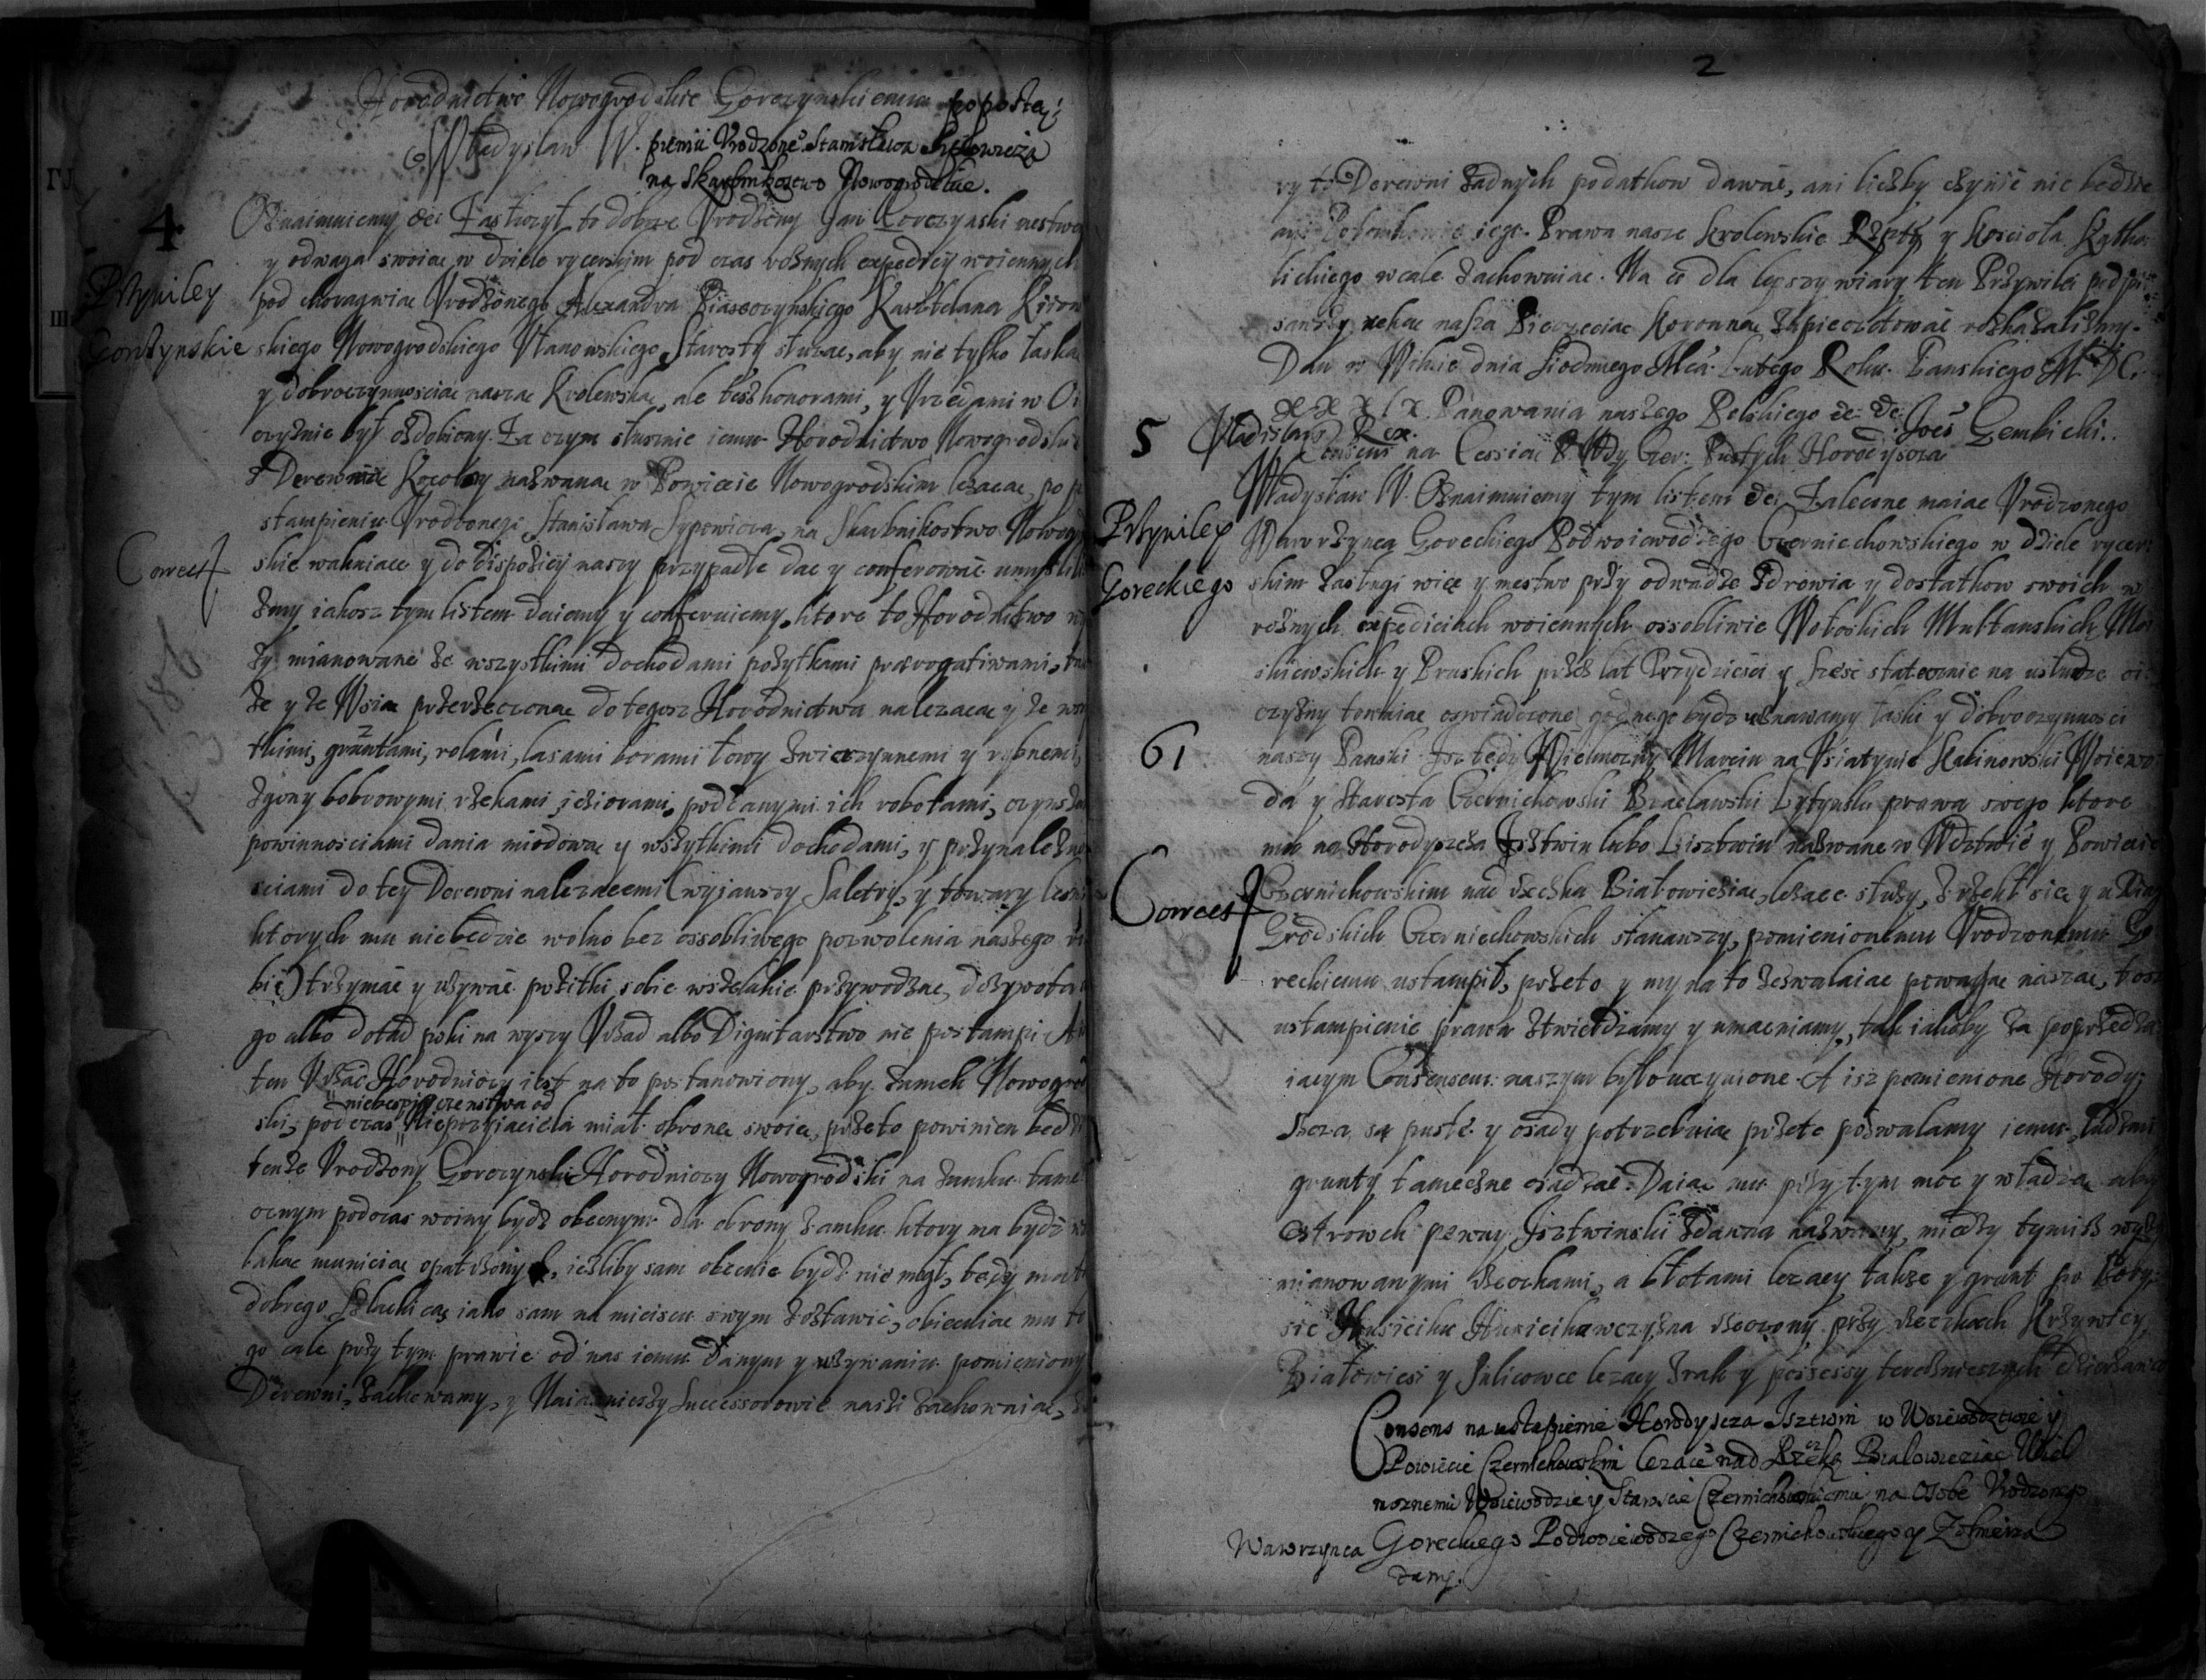 Horodnictwo Nowogrodskie Goreczynskiemu po postą:
Władysław W. pieniu Vrodzone° Stanisława Sypowicza
na Skarbnikostwo Nowogrodskie.
4
Oznaimuiemy &c: Zasłużył to dobrze Vrodzony Jan Gorczynski mestwe
y odwaga swoiae w dziele rycerskim pod czas rożnych expedicy woiennych
Przywiley
pod choragwiae Vrodzonego Alexandra Piaseczynskiego Kasztelana Kiiow
Gorczynskie
skiego Nowogrodskiego Vlanowskiego Starosty służac, aby nie tylko łaskae
y dobroczynnosciae naszae Krolewskae, ale też honorami, y Vrzedami w Oi
czyznie był ozdobiony. Za czym słusznie iemu Horodnictwo Nowogrodskie
z Derewnie nazwanae w Powiecie Nowogrodskim leżacae, po
stampieniu Vrodzonego Stanisława Sypowicza, na Skarbnikostwo Nowogr
Correct
skie wakuiace y do dispozicy naszy przypadłe dac y conferowac umyslili
żmy iakosz tym listem daiemy y conferuiemy, ktore to Horodnictwo
ży mianowane ze wszystkimi dochodami pożytkami praerogatiwami, ta
że y ze Wsia przerzeczonae do tegosz Horodnictwa nalezacae y ze ws
tkimi, gruntami, rolami, lasami borami łowy zwierzynnemi y rybnemi,
zgony bobrowymi rzekami ieziorami, poddanymi ich robotami, czynsza
powinnosciami dania miodowae y wszytkimi dochodami, y przynależno
sciami do tey Derewni nalezacemi (wyiawszy Saletry, y towary lesn
ktorych mu niebedzie wolno bez ossobliwego pozwolenia naszego
bic) trzymac y używac pożitki sobie wszelakie przywodzac, dożywota
go albo dotad poki na wyszy Vrzad albo Dignitarstwo nie postampi A
ten Vrzad Horodniczy iest na to postanowiony, aby zamek Nowogro
niebespieczenstwa od
ski, podczas Nieprzyiaciela miał obrone swoie, przeto powinien bedz
tenże Vrodzony Goreczynski Horodniczy Nowogrodski na zamku tame
cznym podczas woiny bydz obecnym dla obrony zamku ktory ma bydz
takae municiae opatrzony, ieżliby sam obecnie bydz nie mogł, tedy ma
dobrego Szlachcica iako sam na mieiscu swym zostawic, obiecuiac mu
go cale przy tym prawie od nas iemu danym y używaniu pomieniony
Derewni, zachowamy, y Naiasnieszy Successorowie naszi zachowaiae,
2
ry to Derewni żadnych podatkow dawac, ani liczby czynic nie bedzie
ani Potomkowie iego. Prawa nasze Krolewskie Rzpty y Kosciola Katho
lickiego wcale zachowuiac. Na co dla lepszy wiary ten Przywilei podpi
sawszy reka nasza Pieczeciae Koronnae zapieczetowac rozkazalismy.
Dan w Wilnie dnia Siodmego Mca Lutego Roku Panskiego M. DC.
XXXIX. Panowania naszego Polskiego &c. &c. Joes Gembicki.
5
Vladislaus Rex.
Consens na Cessiae P. Wdy Czer: Pustych Horodyszcza
Władysław W. Oznaimuiemy tym listem &c. Zalecone maiac Vrodzonego
Przywiley
Wawrzynca Goreckiego Podwoiewodzego Czerniechowskiego w dziele rycer
Goreckiego
skim zasługi wiec y mestwo przy odwadze zdrowia y dostatkow swoich w
rożnych expediciach woiennych ossobliwie Wołoskich Multanskich Mo
skiewskich y Pruskich przez lat Trzydziesci y szesc statecznie na usłudze oi
czyzny temuiae oswiadczone godnego bydz uznawamy łaski y dobroczynnosci
61
naszy Panski. Isz tedy Wielmozny Marcin na Vsiatynie Kalinowski Woiewo
da y Starosta Czernichowski Bracławski Lytynski prawa swego ktore
mu na Horodyszcza Isztwin lubo Lisztwin nazwane w Wdztwie y Powiecie
Correct
Czernichowskim nad rzeczka Białowieziae, leżace służy, zrzekł sie y u Xiag
Grodskich Czerniechowskich stanawszy, pomienionemu Vrodzonemu Go
reckiemu ustampił, przeto y my na to zezwalaiac powagae naszae, tosz
ustampienie prawa ztwierdzamy y umacniamy, tak iakoby za poprzedza
iacym Consensem naszym było uczynione. A isz pomienione Horody
szcza sa puste y osady potrzebuiae przeto pozwalamy iemu ludzmi
grunty tameczne osadzac. Daiac mu przy tym moc y władzae aby
ostrowek pewny Isztwinski zdawna nazwany, miedzy tymisz wyży
mianowanymi rzeczkami, a błotami lezacy także y grunt po
sie Husiciku Husicikowczyzna rzeczony przy rzeczkach Krzywicy,
Białowiesi y Sulicowce lezacy z rak y possessy
Consens na ustąpienie Horodyscza Isztwin w Woiewodztwie y
Powiecie Czernichowskim lezące nad Rzeką Białowieziae Wiel
moznemu Woiewodzie y Staroscie Czernichowskiemu na Osobe Vrodzonego
Wawrzynca Goreckiego Podwoiewodzego Czernichowskiego y Zołnierza
dany.